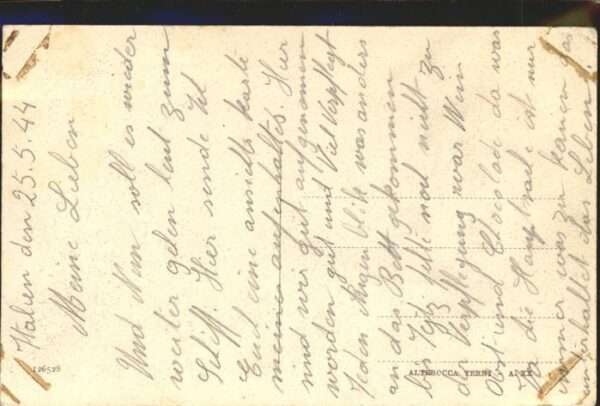 Italien den 25.5.44
Meine Lieben
Und Nun soll es wieder
weiter gehen laut zum
Schiff. Hier sende Ich
Euch eine ansichts karte
meines aufenthaltes. Hier
sind wir gut aufgenomen
worden gut und Viel Verpflegt
Jeden Augen blik was anders
an das Bett gekommen
bis Jetz fehlt noch nicht zu
der Verpflegung zwar Wein
Obst und Chocolade da was
Ja die Haupt sache ist nur
immer was zu kauen das
unterhaltet das Leben
126528
ALTEROCCA TERNI